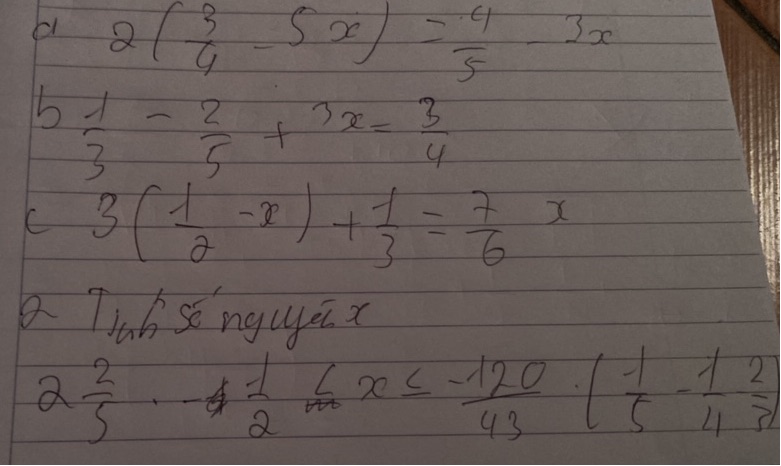 a 2(3/4 - 5x) = 4/5 - 3x
b 1/3 - 2/5 + 3x = 3/4
c 3(1/2 - x) + 1/3 = 7/6 x
2 Tính số nguyên x
2 2/5 . - 1/2 ≤ x ≤ -120/43 . (1/5 - 1/4 2/3)